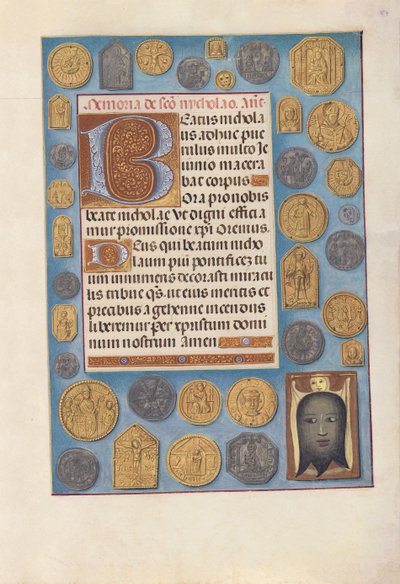 Memoria de sco nycholao. Añt
Beatus nichola
us adhuc pue
rulus multo Je
iunio macera
bat corpus
Ora pro nobis
beate nicholae Vt digni effici a
mur promissione xp̃i Oremus.
Deus qui beatum nicho
laum piũ pontificez tu
um innumeris decorasti miracu
lis tribue q̃s. ut eius meritis et
precibus a gehenne incendiis
liberemur per xpristum domi
num nostrum Amen